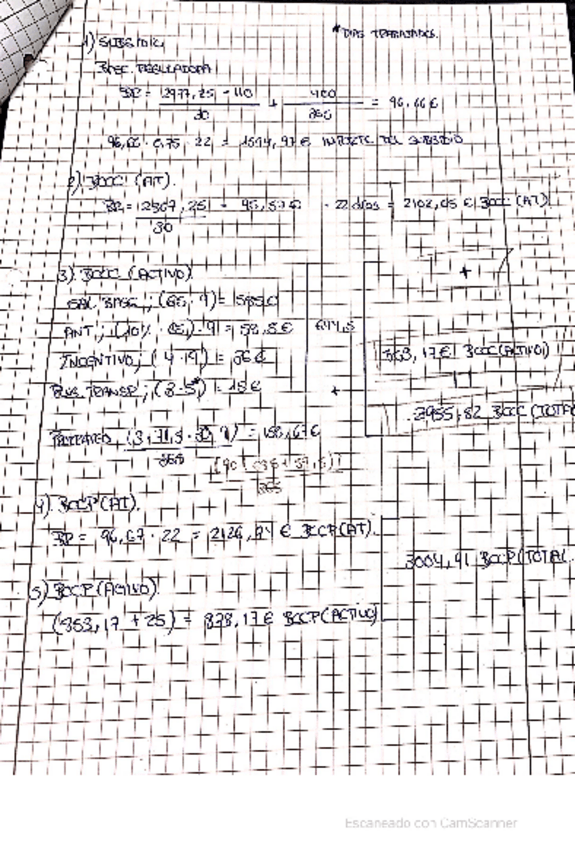 * DIAS TRABAJADOS.
1) SUBSIDIO
BASE REGULADORA
BR = 2977,25 - 110 / 30 + 400 / 365 = 96,66 €
96,66 · 0,75 · 22 = 1594,97 € IMPORTE DEL SUBSIDIO
2) BCCC (AT).
BR = 2867,25 / 30 = 95,57 € · 22 días = 2102,65 € BCCC (AT)
3) BCCC (ACTIVO)
SAL. BASE; (65 · 9) = 585 €
ANT; (10% · 65) · 9 = 58,5 €
INCENTIVO; (4 · 9) = 36 €
PLUS TRANSP; (3 · 5) = 15 €
853,17 € BCCC (ACTIVO)
2955,82 BCCC (TOTAL
= 158,67 €
365
4) BCCP (AT).
BR = 96,67 · 22 = 2126,74 € BCCP (AT).
3004,91 BCCP (TOTAL
5) BCCP (ACTIVO)
(853,17 + 25) = 878,17 € BCCP (ACTIVO)
Escaneado con CamScanner